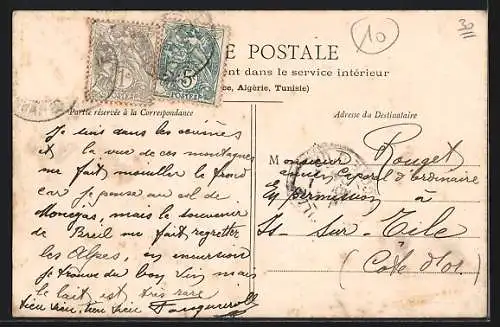 10
30
E POSTALE
ent dans le service intérieur
ce, Algérie, Tunisie)
Partie réservée à la Correspondance
Adresse du Destinataire
1c
5c
POSTES
POSTES
Je suis dans les
et la vue de ces montagnes
me fait mouiller le front
car je pense au col de
mais le souvenir
de Breil me fait regretter
les Alpes, en excursion
je trouve du bon vin mais
le lait est très rare
Monsieur Rouget
Caporal d'ordinaire
En permission à
Is-sur-Tille
(Côte d'Or)